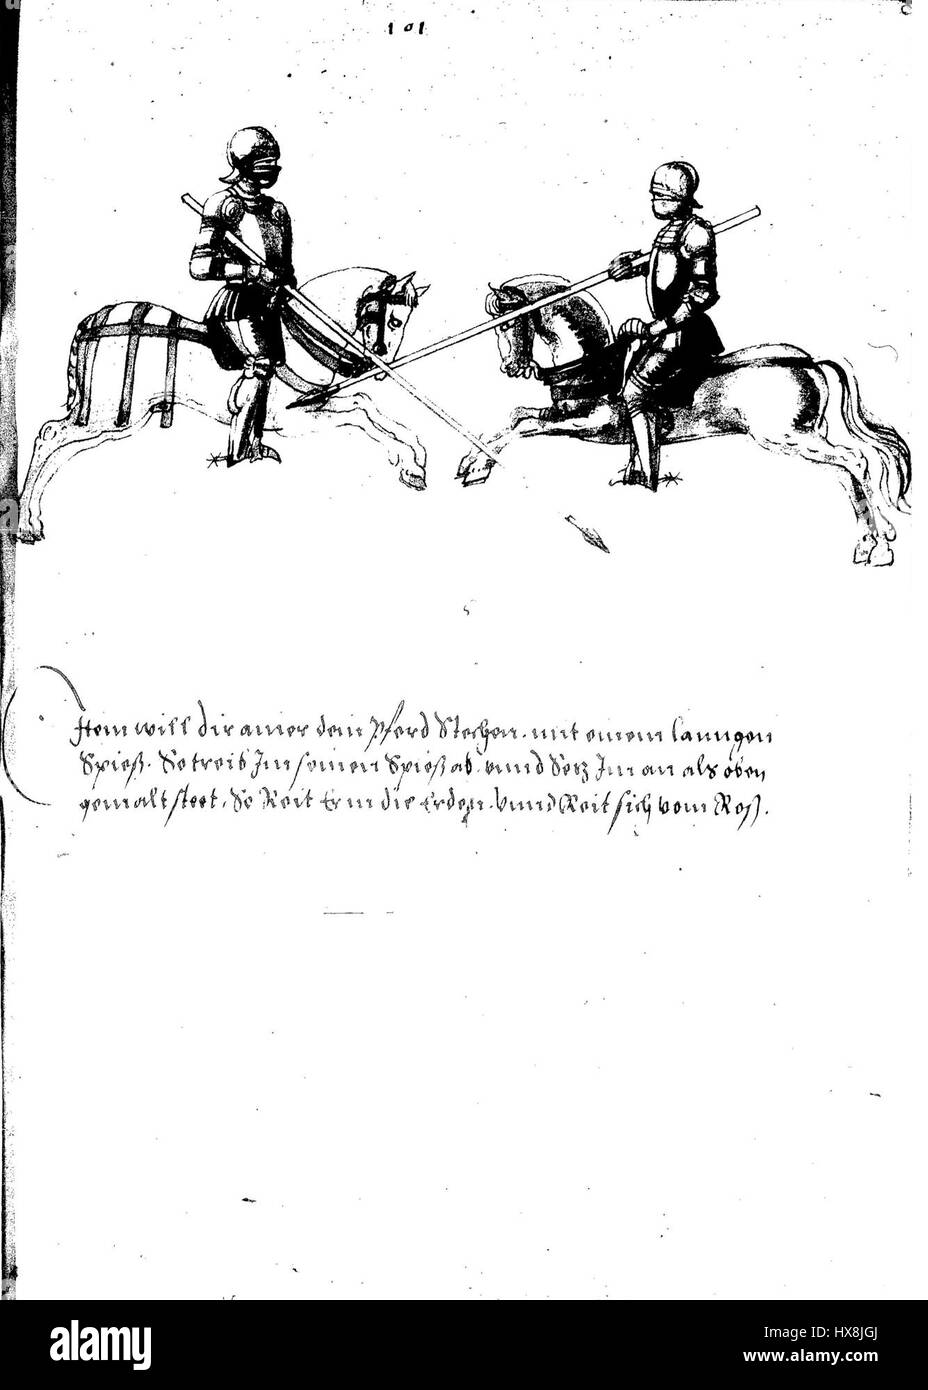 101
Item will dir ainer dein Pferd Stechen. mit einem lanngen
Spieß. So treib Im seinen Spieß ab. vnnd Setz Im an als oben
gemalt steet. So Reit Er in die Erden. vnnd Reit sich vom Roß.
a
a
a
alamy
Image ID: HX8JGJ
www.alamy.com